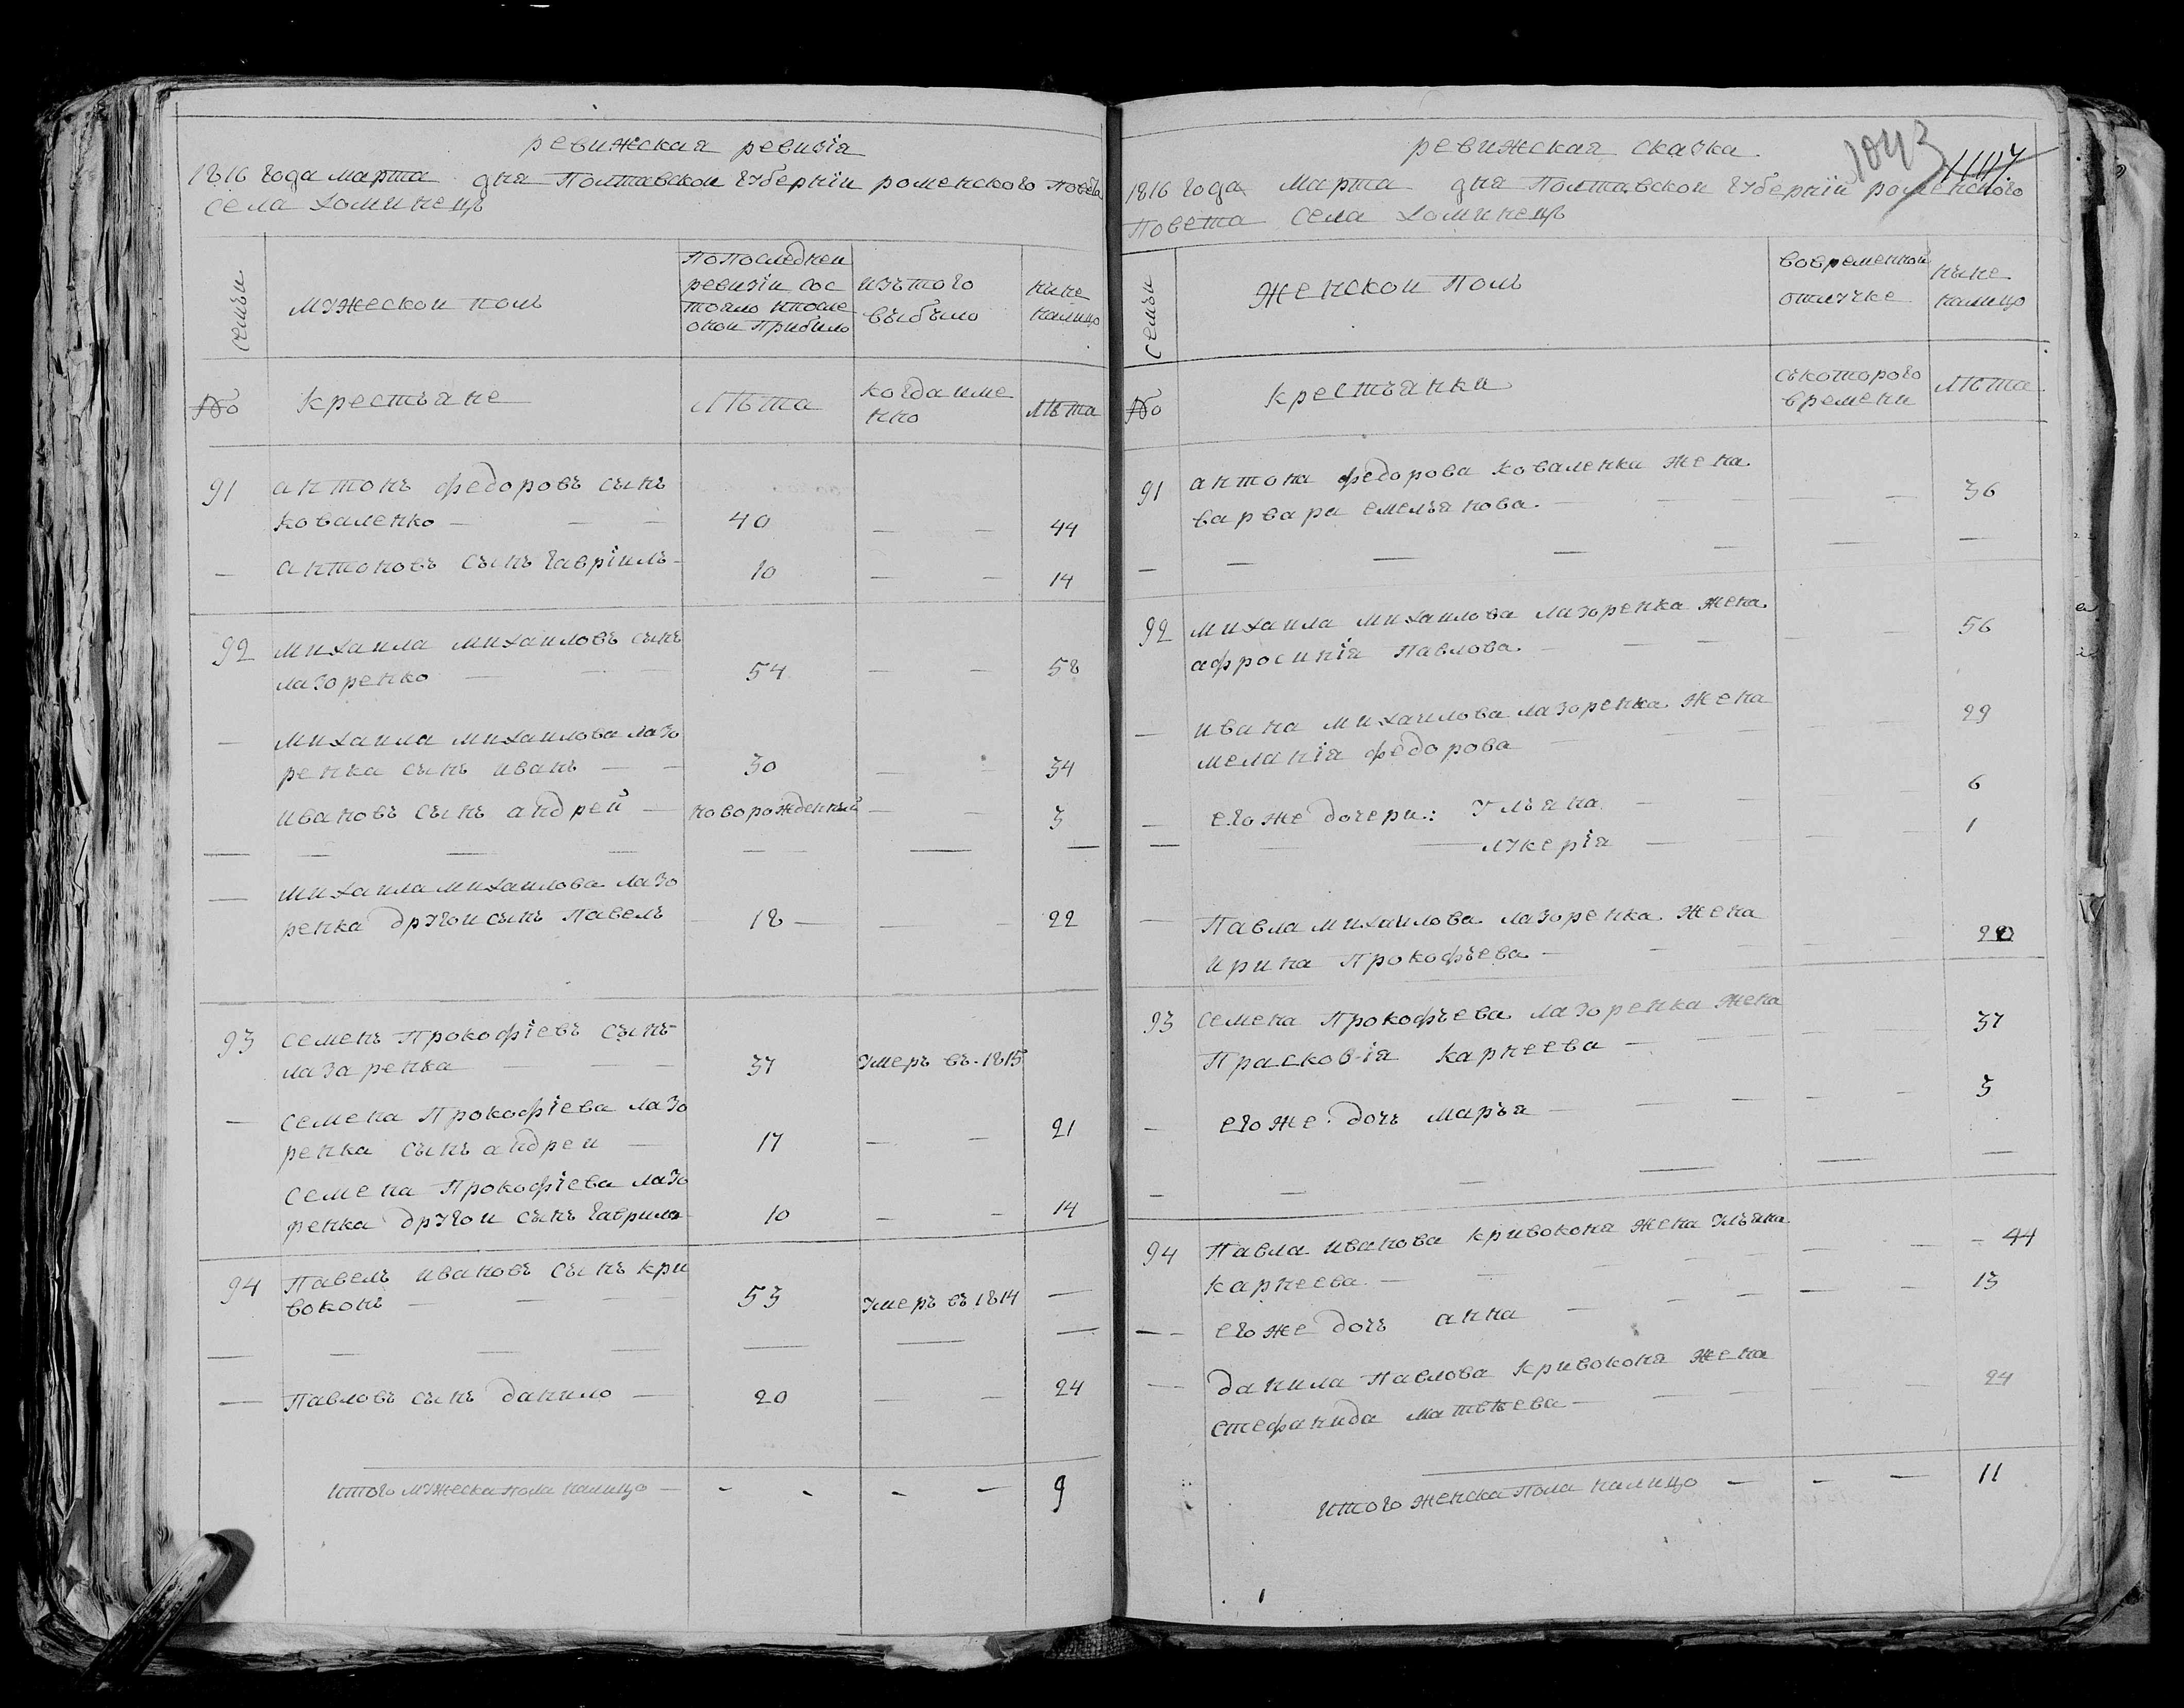 ревижская ревизія
1816 года марта дня Полтавской губерніи роменского повета
села хоминецъ
семьи
мужеской полъ
по последней
ревизіи сос
тояло и после
оной прибило
изътого
выбыло
ныне
налицо
№
крестьяне
лѣта
когда име
нно
лѣта
91 антонъ федоровъ сынъ
коваленко — 40 — — 44
— антоновъ сынъ гавріилъ — 10 — — 14
92 михаила михаиловъ сынъ
лазоренко — 54 — — 58
— михаила михаилова лазо
ренка сынъ иванъ — — 30 — 34
ивановъ сынъ андрей — новорожденный — — 3
— михаила михаилова лазо
ренка другои сынъ павелъ 18 — — 22
93 семенъ Прокофіевъ сынъ
лазаренка — 37 умеръ въ 1815
— семена Прокофіева лазо
ренка сынъ андреи — 17 — — 21
семена Прокофіева лазо
ренка другои сынъ гаврило 10 — — 14
94 Павелъ ивановъ сынъ кри
воконь — 53 умеръ въ 1814 —
— Павловъ сынъ данило — 20 — — 24
итого мужеска пола налицо — - - - — 9
ревижская сказка
1043
1117
1816 года марта дня Полтавской губерніи роменского
Повета села хоминецъ
семьи
женской полъ
вовременной
отлучке
ныне
налицо
№
крестьянки
съкоторого
времени
лѣта
91 антона федорова коваленка жена
варвара емельянова. — 36
92 михаила михаилова лазоренка жена
афросинія Павлова. — 56
— ивана михаилова лазоренка жена 29
меланія федорова
— его же дочери: Ульяна — 6
— лукерія — 1
— Павла михаилова лазоренка жена
ирина Прокофьева — 20
93 семена Прокофьева лазоренка жена
Прасковія карпеева — 37
— его же дочь марья — 3
94 Павла иванова кривоконя жена ульяна — 44
карпеева —
— его же дочь анна — 13
— данила Павлова кривоконя жена
стефанида матвѣева — 24
итого женска пола налицо — - — 11